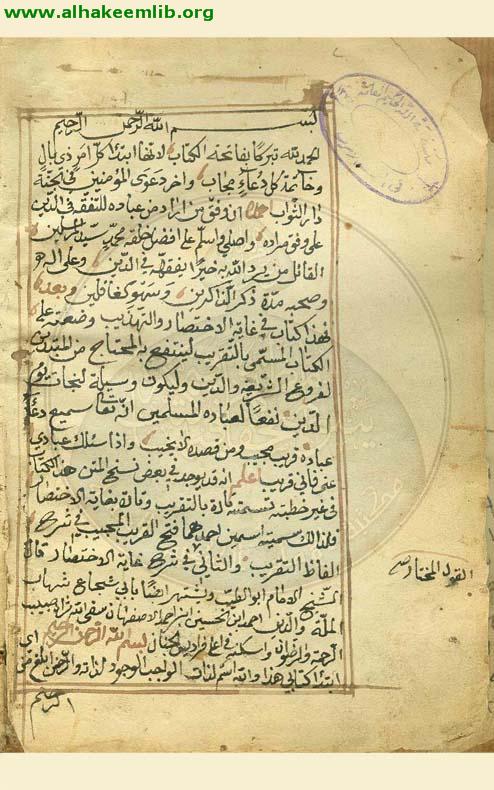 www.alhakeemlib.org
بسم الله الرحمن الرحيم
الحمد لله تبركا بفاتحة الكتاب لانها ابتداء كل امر ذي بال
وخاتمة كل دعاء يجاب واخر دعوى المؤمنين في الجنة
دار الثواب احمده ان وفق من اراد من عباده للتفقه في الدين
على وفق مراده واصلي واسلم على افضل خلقه محمد سيد المرسلين
القائل من يرد الله به خيرا يفقهه في الدين وعلى اله
وصحبه مدة ذكر الذاكرين وسهو الغافلين وبعد
فهذا كتاب في غاية الاختصار والتهذيب وضعته على
الكتاب المسمى بالتقريب لينتفع به المحتاج من المبتدئين
لفروع الشريعة والدين وليكون وسيلة لنجاتي يوم
الدين ونفعا لعباده المسلمين انه تعالى سميع دعاء
عباده قريب مجيب ومن قصده لا يخيب واذا سئلك عبادي
عني فاني قريب اعلم انه قد يوجد في بعض نسخ المتن هذا الكتاب
في غير خطبته تسميته تارة بالتقريب وتارة بغاية الاختصار
فلذلك سميته اسمين احدهما فتح القريب المجيب في شرح
الفاظ التقريب والثاني في شرح غاية الاختصار قال
الشيخ الامام ابو الطيب ويشتهر ايضا بابي شجاع شهاب
الملة والدين احمد ابن الحسين ابن احمد الاصفهاني سقى الله ثراه صبيب
الرحمة والرضوان واسكنه في اعلى فراديس الجنان بسم الله الرحمن الرحيم اي
ابتدأ كتابي هذا والله اسم لذات الواجب الوجود لذاته والرحمن ابلغ من
الرحيم
القول المختار